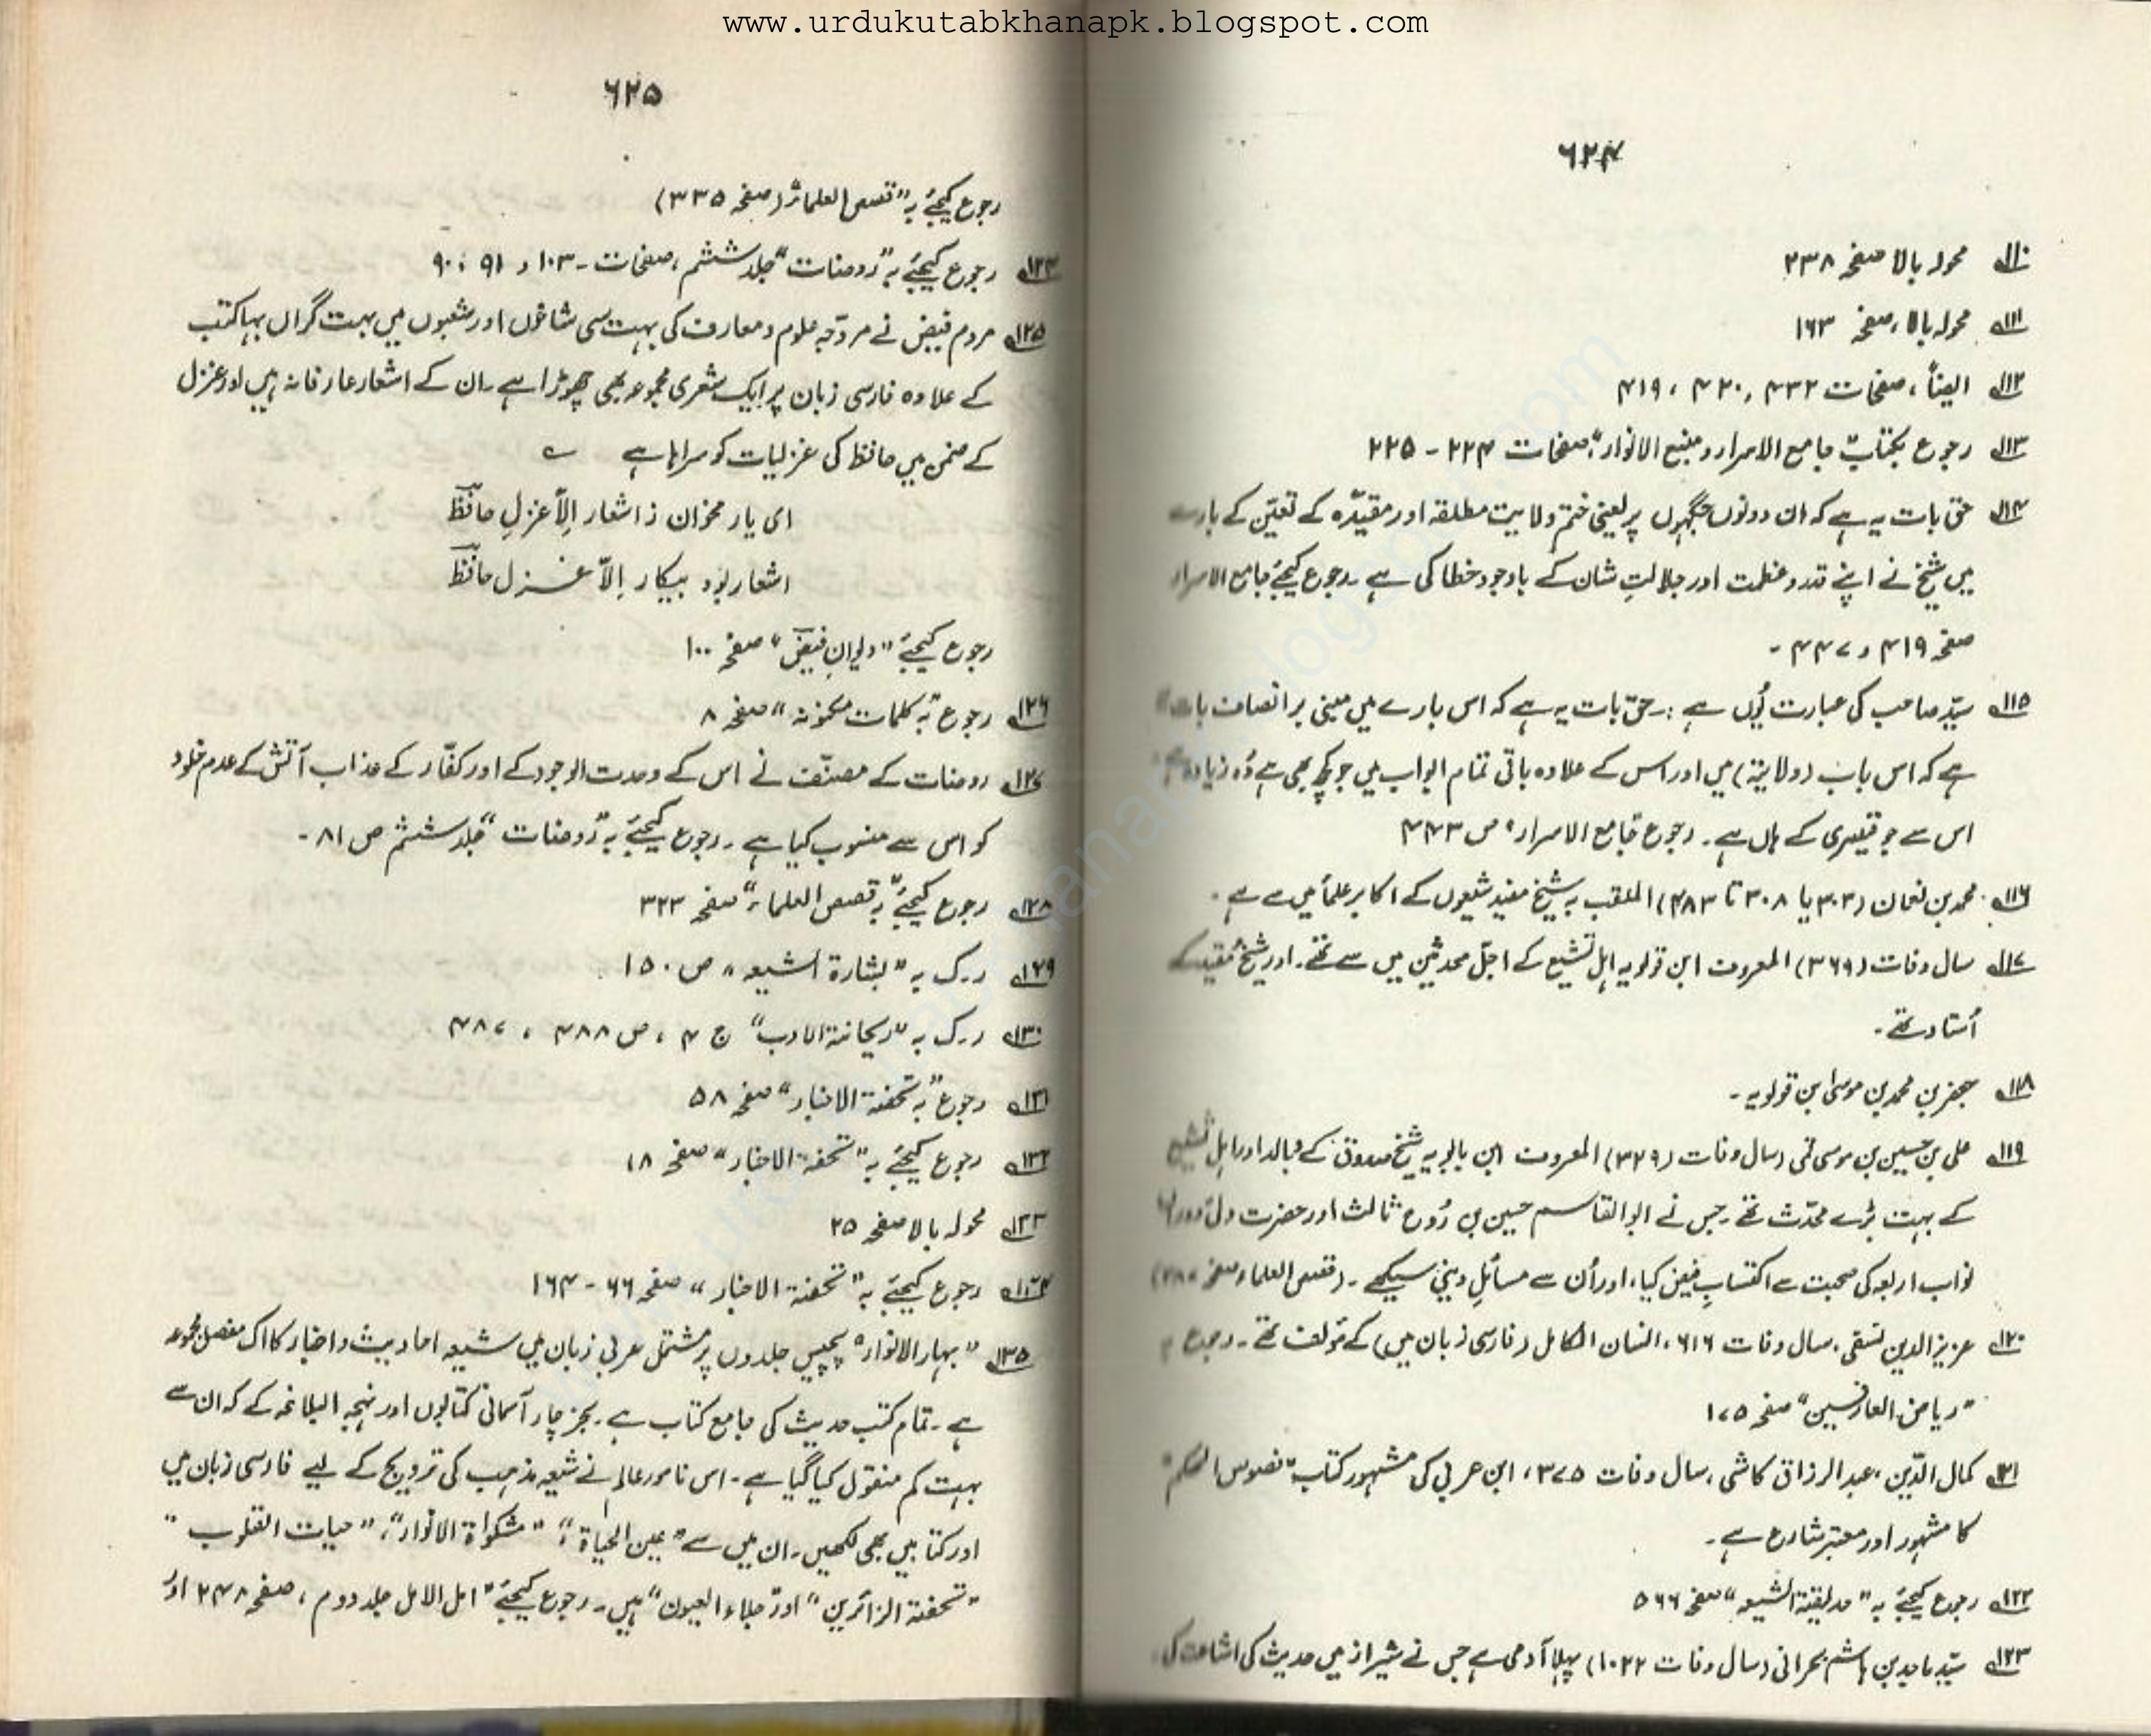 www.urdukutabkhanapk.blogspot.com
۶۲۴
۱۱۰ محولہ بالا صفحہ ۲۳۸
۱۱۱ محولہ بالا، صفحہ ۱۶۳
۱۱۲ ایضاً، صفحات ۴۳۲، ۴۲۰، ۴۱۹
۱۱۳ رجوع بکتاب "جامع الاسرار و منبع الانوار" صفحات ۲۲۴ - ۲۲۵
۱۱۴ حق بات یہ ہے کہ ان دونوں جگہوں پر یعنی ختم ولایت مطلقہ اور مقیدہ کے تعیّن کے بارے
میں شیخ نے اپنے قدر و عظمت اور جلالتِ شان کے باوجود خطا کی ہے۔ رجوع کیجئے جامع الاسرار
صفحہ ۴۱۹ و ۴۴۷ -
۱۱۵ سیّد صاحب کی عبارت یُوں ہے :۔ حق بات یہ ہے کہ اس بارے میں مبنی بر انصاف بات
ہے کہ اس باب (ولایتہ) میں اور اس کے علاوہ باقی تمام ابواب میں جو کچھ بھی ہے وُہ زیادہ
اس سے جو قیصری کے ہاں ہے۔ رجوع "جامع الاسرار" ص ۴۴۳
۱۱۶ محمد بن نعمان (۳۰۳ یا ۳۰۸ تا ۴۸۳) الملقب بہ شیخ مفید شیعوں کے اکابر علمأ میں سے ہے۔
۱۱۷ سال وفات (۳۶۹) المعروف ابن قولویہ اہل تشیع کے اجلّ محدثین میں سے تھے۔ اور شیخ مُفید کے
اُستاد تھے۔
۱۱۸ جعفر بن محمد بن موسیٰ ابن قولویہ۔
۱۱۹ علی بن حسین بن موسی قمی (سال وفات ۳۲۹) المعروف ابن بابویہ شیخ صدوق کے والد اور اہل تشیع
کے بہت بڑے محدّث تھے۔ جس نے ابوالقاسم حسین بن رُوح ثالث اور حضرت ولی
نواب اربعہ کی صحبت سے اکتسابِ فیض کیا، اور اُن سے مسائل دینی سیکھے۔ (قصص العلماء صفحہ
۱۲۰ عزیز الدین نسفی، سال وفات ۶۱۶، انسان الکامل (فارسی زبان میں) کے مؤلف تھے۔ رجوع
"ریاض العارفین" صفحہ ۱۷۵
۱۲۱ کمال الدّین، عبدالرزاق کاشی، سال وفات ۳۷۵، ابن عربی کی مشہور کتاب "فصوص الحکم"
کا مشہور اور معتبر شارح ہے۔
۱۲۲ رجوع کیجئے بہ "حدیقتہ الشیعہ" صفحہ ۵۶۶
۱۲۳ سیّد ماجد بن ہاشم بحرانی (سال وفات ۱۰۲۲) پہلا آدمی ہے جس نے شیراز میں حدیث کی اشاعت کی
۶۲۵
رجوع کیجئے بہ "قصص العلمائ" (صفحہ ۳۳۵)
۱۲۴ رجوع کیجئے بہ "روضات" جلد ششم، صفحات - ۱۰۳، ۹۱، ۹۰
۱۲۵ مردم فیض نے مروّجہ علوم و معارف کی بہت سی شاخوں اور شعبوں میں بہت گراں بہا کتب
کے علاوہ فارسی زبان پر ایک شعری مجموعہ بھی چھوڑا ہے۔ ان کے اشعار عارفانہ ہیں اور غزل
کے ضمن میں حافظ کی غزلیات کو سراہا ہے
ای یار مخوان ز اشعار اِلّا غزلِ حافظ
اشعار بود بیکار اِلّا غزل حافظ
رجوع کیجئے "دیوانِ فیض" صفحہ ۱۰۰
۱۲۶ رجوع بہ "کلمات مکنونہ" صفحہ ۸
۱۲۷ روضات کے مصنّف نے اس کے وحدت الوجود کے اور کفّار کے عذاب آتش کے عدم خلود
کو اس سے منسوب کیا ہے۔ رجوع کیجئے بہ "روضات" جلد ششم ص ۸۱ -
۱۲۸ رجوع کیجئے بہ "قصص العلماء" صفحہ ۳۲۳
۱۲۹ ر۔ک بہ "بشارة الشیعہ" ص ۱۵۰
۱۳۰ ر۔ک بہ "ریحانتہ الادب" ج ۴، ص ۴۸۸، ۴۸۷
۱۳۱ رجوع بہ "تحفتہ الاخبار" صفحہ ۵۸
۱۳۲ رجوع کیجئے بہ "تحفۃ الاخبار" صفحہ ۱۸
۱۳۳ محولہ بالا صفحہ ۲۵
۱۳۴ رجوع کیجئے بہ "تحفتہ الاخبار" صفحہ ۶۶ - ۱۶۴
۱۳۵ "بہار الانوار" پچپیس جلدوں پر مشتمل عربی زبان میں شیعہ احادیث و اخبار کا اک مفصل مجموعہ
ہے۔ تمام کتب حدیث کی جامع کتاب ہے۔ بجز چار آسمانی کتابوں اور نہجہ البلاغہ کے کہ ان سے
بہت کم منقول کیا گیا ہے۔ اس نامور عالم نے شیعہ مذہب کی ترویج کے لیے فارسی زبان میں
اور کتابیں بھی لکھیں۔ ان میں سے "عین الحیاة"، "مشکواة الانوار"، "حیات القلوب"
"تحفتہ الزائرین" اور "جلاء العیون" ہیں۔ رجوع کیجئے "امل الامل جلد دوم، صفحہ ۲۴۸ اور